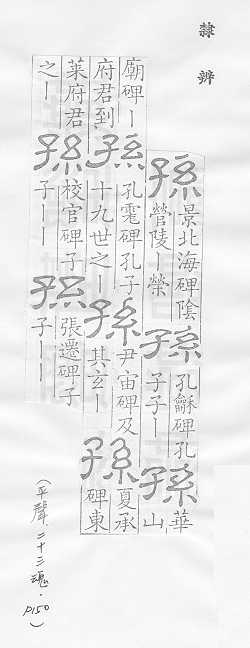 隸辨
孫
景北海碑陰
營陵｜榮
孫
孔龢碑孔
子子｜
孫
華
山
廟碑｜
府君到
孫
孔 碑孔子
十九世之｜
孫
尹宙碑及
其玄｜
孫
夏承
碑東
萊府君
之｜
孫
校官碑子
子｜｜
孫
張遷碑子
子｜｜
（平聲二十三魂．P150）